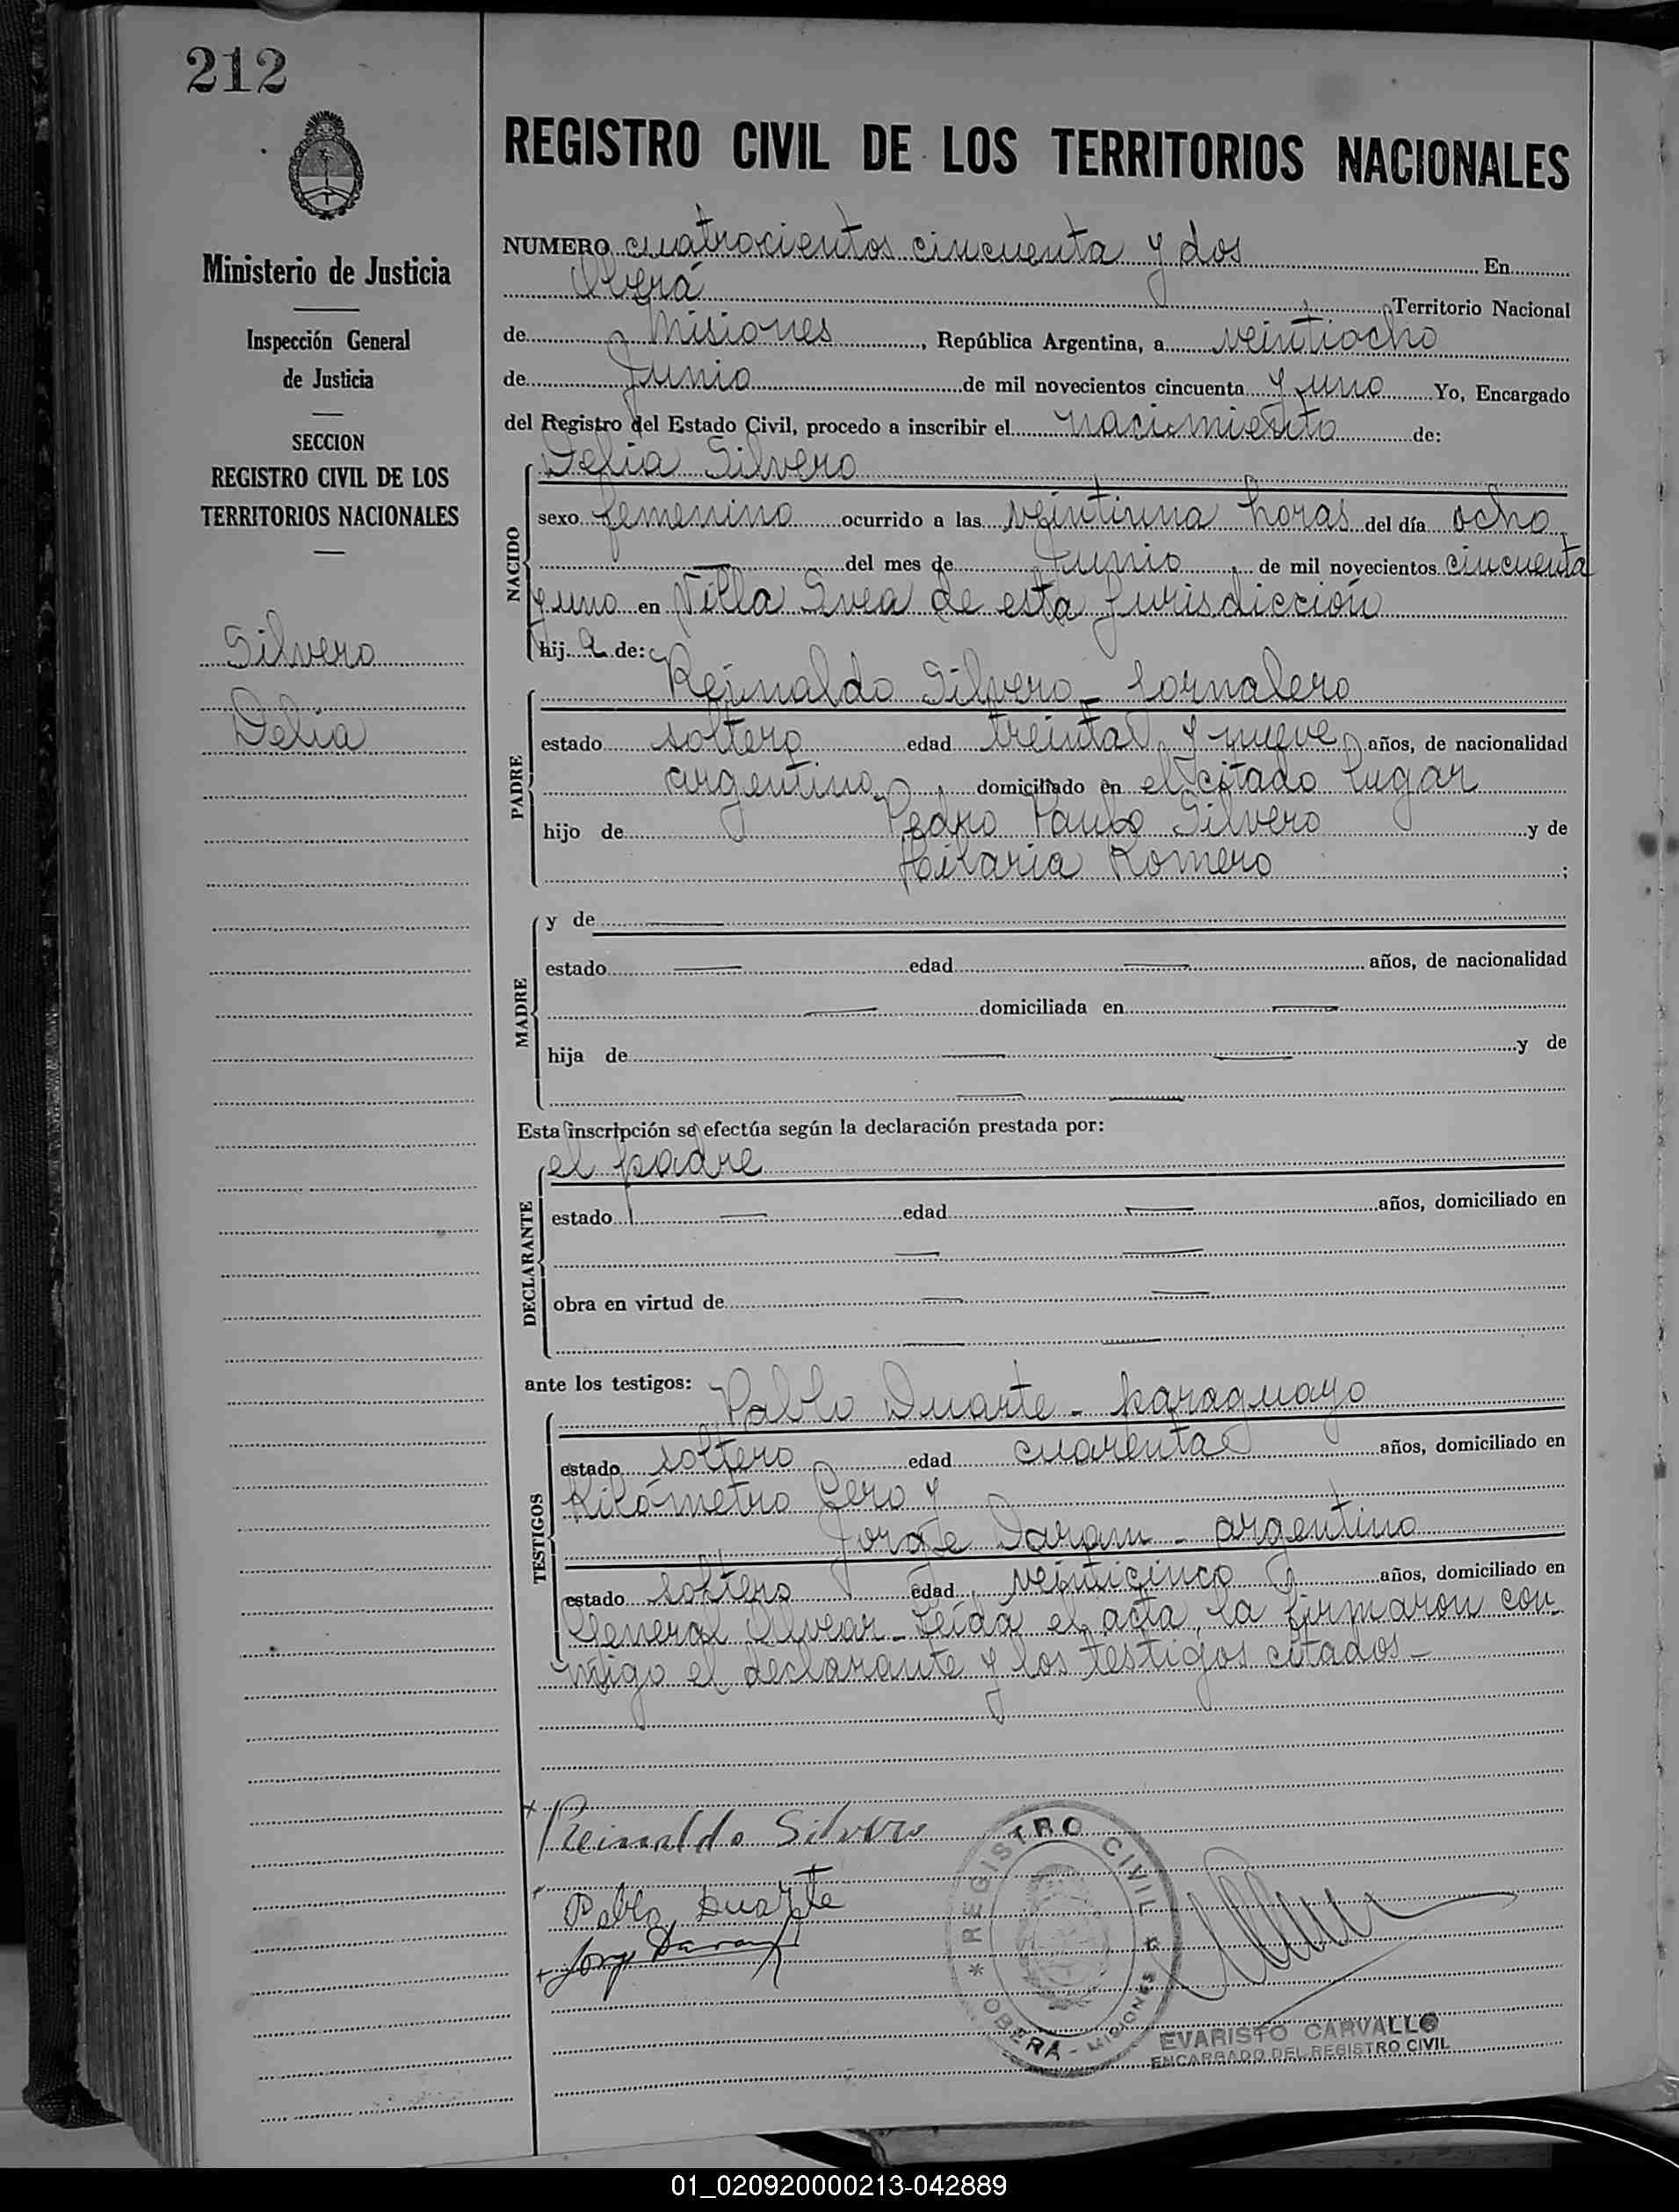 212
REGISTRO CIVIL DE LOS TERRITORIOS NACIONALES
Ministerio de Justicia
Inspección General
de Justicia
SECCION
REGISTRO CIVIL DE LOS
TERRITORIOS NACIONALES
Silvero
Delia
NUMERO cuatrocientos cincuenta y dos En
Oberá Territorio Nacional
de Misiones, República Argentina, a veintiocho
de Junio de mil novecientos cincuenta y uno Yo, Encargado
del Registro del Estado Civil, procedo a inscribir el nacimiento de:
NACIDO
Delia Silvero
sexo femenino ocurrido a las veintiuna horas del día ocho
del mes de Junio de mil novecientos cincuenta
y uno en Villa Svea de esta Jurisdicción
hija de:
PADRE
Reinaldo Silvero - Jornalero
estado soltero edad treinta y nueve años, de nacionalidad
argentino domiciliado en el citado lugar
hijo de Pedro Paulo Silvero y de
Hilaria Romero ;
MADRE
y de
estado edad años, de nacionalidad
domiciliada en
hija de y de
Esta inscripción se efectúa según la declaración prestada por:
DECLARANTE
el padre
estado edad años, domiciliado en
obra en virtud de
ante los testigos:
TESTIGOS
Pablo Duarte - paraguayo
estado soltero edad cuarenta años, domiciliado en
Kilómetro Cero y
Jorge - argentino
estado soltero edad veinticinco años, domiciliado en
General Alvear - Leída el acta, la firmaron con-
migo el declarante y los testigos citados -
Reinaldo Silvero
Pablo Duarte
Jorge
REGISTRO CIVIL
* OBERA - MISIONES *
EVARISTO CARVALLO
ENCARGADO DEL REGISTRO CIVIL
01_020920000213-042889